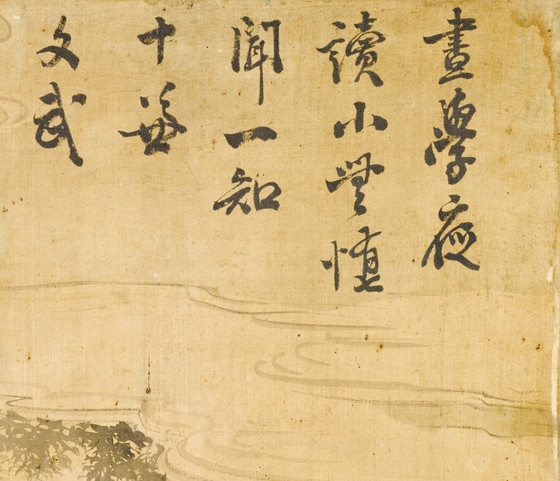 晝學夜
讀小無惰
聞一知
十兼
文武